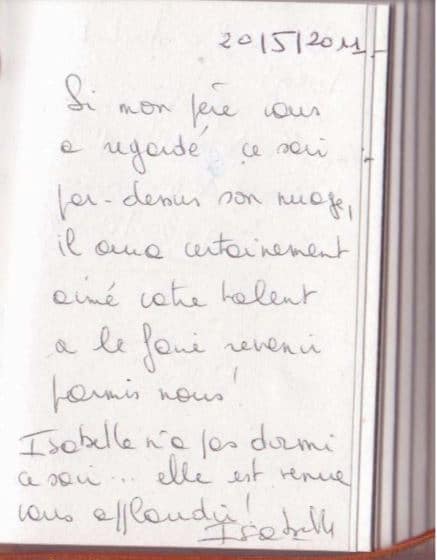 20/5/2011
Si mon père vous
a regardé, ce soir
par-dessus son nuage,
il aura certainement
aimé votre talent
a le faire revenir
parmis nous !
Isabelle n'a pas dormi
ce soir... elle est venue
vous applaudir !
Isabelle